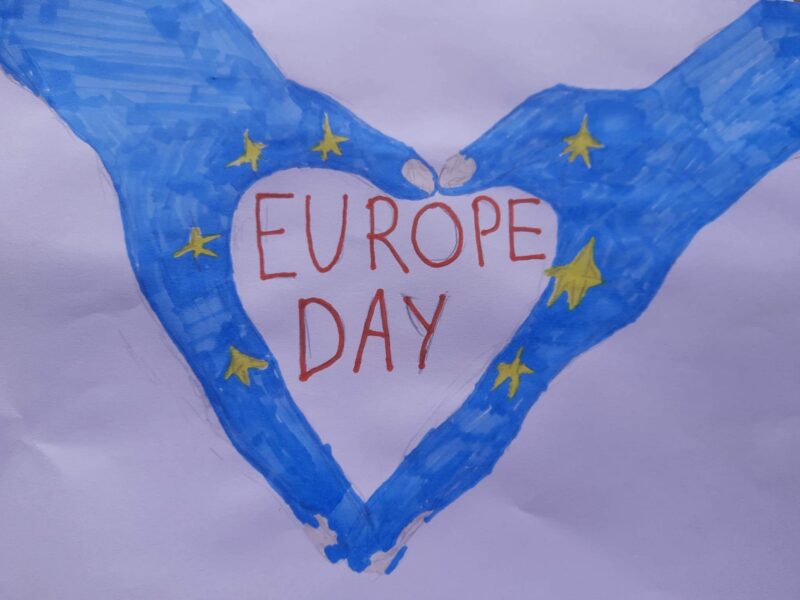 EUROPE
DAY